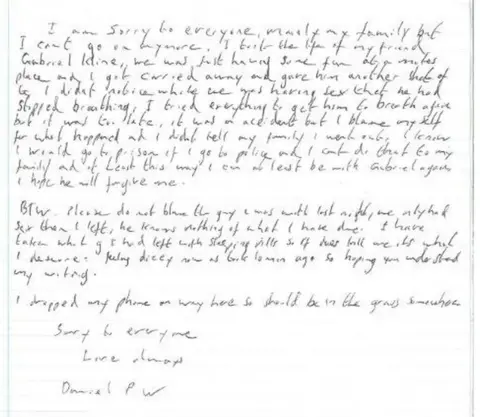 I am sorry to everyone, mainly my family but
I cant go on anymore, I took the life of my friend
Gabriel Kline, we was just having some fun at a mates
place and I got carried away and gave him another shot of
G. I didnt notice while we was having sex that he had
stopped breathing. I tried everything to get him to breath again
but it was too late, it was an accident but I blame myself
for what happened and I didnt tell my family I went out. I know
I would go to prison if I go to police and I cant do that to my
family and at least this way I can at least be with Gabriel again
I hope he will forgive me.
BTW. Please do not blame the guy I was with last night, we only had
sex then I left, he knows nothing of what I have done. I have
taken what g I had left with sleeping pills so if it does kill me its what
I deserve. Feeling dizzy now as took 10 min ago so hoping you understand
my writing.
I dropped my phone on way here so should be in the grass somewhere
Sorry to everyone
Love always
Daniel P W